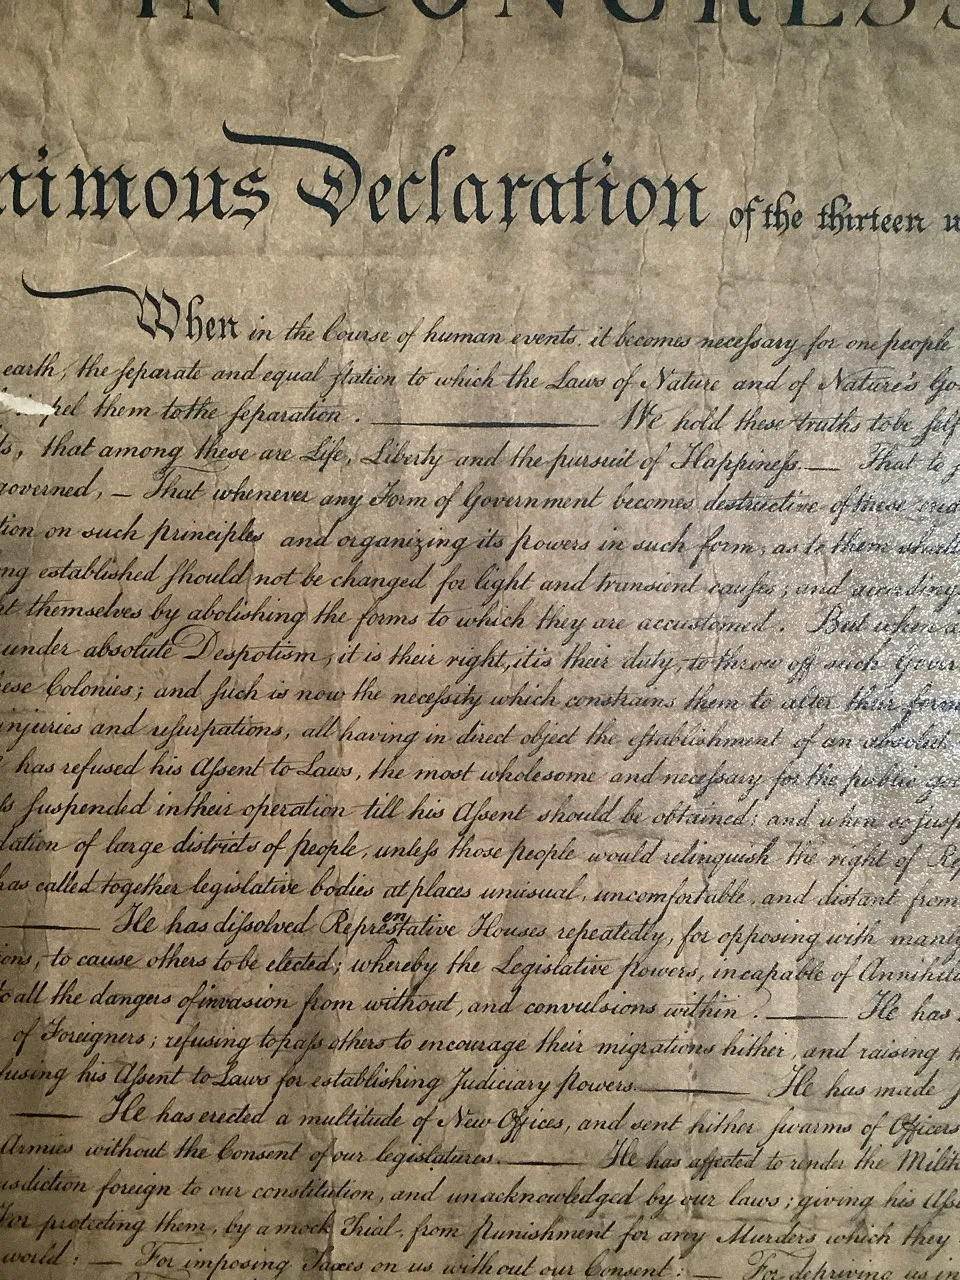 IN CONGRESS
nimous Declaration of the thirteen u
When in the Course of human events. it becomes necessary for one people
earth, the separate and equal station to which the Laws of Nature and of Nature's Go
impel them to the separation. We hold these truths to be self
ts, that among these are Life, Liberty and the pursuit of Happiness.— That to s
governed, — That whenever any Form of Government becomes destructive of these ends
tion on such principles and organizing its powers in such form, as to them shall
ng established should not be changed for light and transient causes; and accordingly
t themselves by abolishing the forms to which they are accustomed. But when a
under absolute Despotism, it is their right, it is their duty, to throw off such Govern
hese Colonies; and such is now the necessity which constrains them to alter their form
injuries and usurpations, all having in direct object the establishment of an absolut
has refused his Assent to Laws, the most wholesome and necessary for the public goo
ss suspended in their operation till his Assent should be obtained; and when so susp
dation of large districts of people, unless those people would relinquish the right of Rep
has called together legislative bodies at places unusual, uncomfortable, and distant from
He has dissolved Representative Houses repeatedly, for opposing with manly
ions, to cause others to be elected; whereby the Legislative powers, incapable of Annihila
to all the dangers of invasion from without, and convulsions within. — He has
of Foreigners; refusing to pass others to encourage their migrations hither, and raising th
fusing his Assent to Laws for establishing Judiciary powers. — He has made J
— He has erected a multitude of New Offices, and sent hither swarms of Officers
Armies without the Consent of our legislatures. — He has affected to render the Milit
isdiction foreign to our constitution, and unacknowledged by our laws; giving his Ass
For protecting them, by a mock Trial, from punishment for any Murders which they
world: — For imposing Taxes on us without our Consent: — For depriving us in